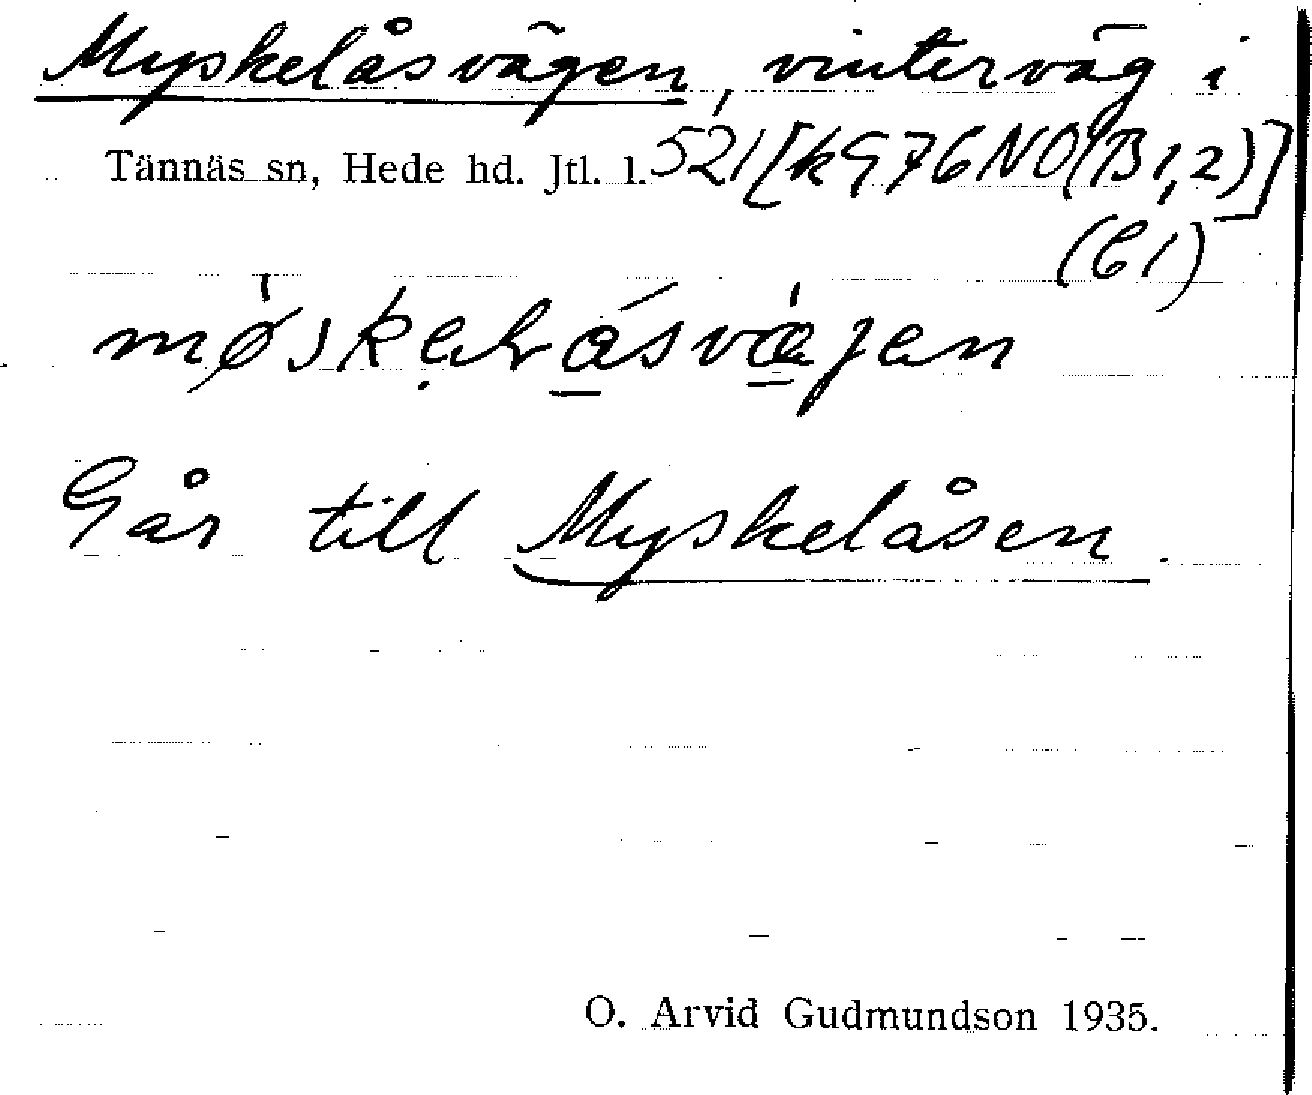 Myskelåsvägen, vinterväg i
Tännäs sn, Hede hd. Jtl. l. 521[kG76NO(B1,2)]
(C1)
Går till Myskelåsen.
O. Arvid Gudmundson 1935.